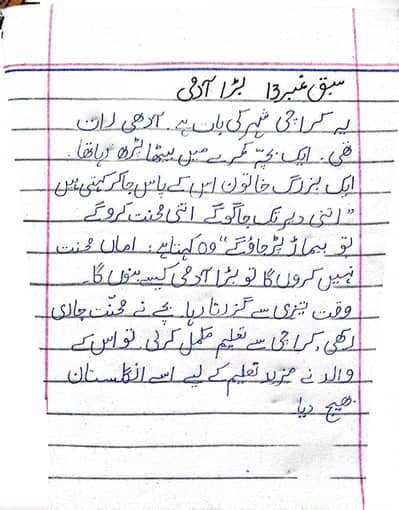 سبق نمبر 13 بڑا آدمی
یہ کراچی شہر کی بات ہے۔ آدھی رات
تھی۔ ایک بچہ کمرے میں بیٹھا پڑھ رہا تھا۔
ایک بزرگ خاتون اس کے پاس جا کر کہتی ہیں
"اتنی دیر تک جاگو گے اتنی محنت کرو گے
تو بیمار پڑ جاؤ گے" وہ کہتا ہے: اماں محنت
نہیں کروں گا تو بڑا آدمی کیسے بنوں گا۔
وقت تیزی سے گزرتا رہا بچے نے محنت جاری
رکھی، کراچی سے تعلیم مکمل کر لی۔ تو اس کے
والد نے مزید تعلیم کے لیے اسے انگلستان
بھیج دیا